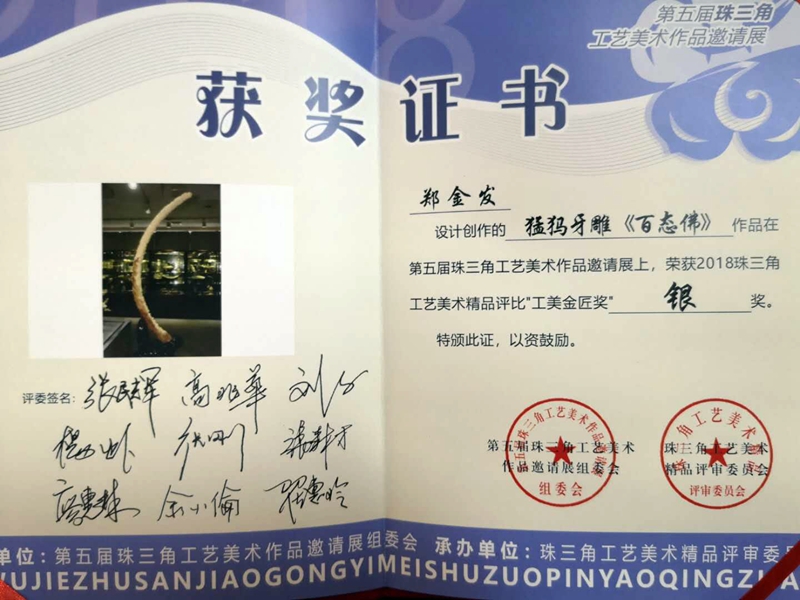 第五届珠三角
工艺美术作品邀请展
获奖证书
郑金发
设计创作的 猛犸牙雕《百态佛》 作品在
第五届珠三角工艺美术作品邀请展上，荣获2018珠三角
工艺美术精品评比"工美金匠奖" 银 奖。
特颁此证，以资鼓励。
评委签名：
第五届珠三角工艺美术
作品邀请展组委会
组委会
珠三角工艺美术
精品评审委员会
评审委员会
单位：第五届珠三角工艺美术作品邀请展组委会 承办单位：珠三角工艺美术精品评审委员
WUJIEZHUSANJIAOGONGYIMEISHUZUOPINYAOQINGZHA